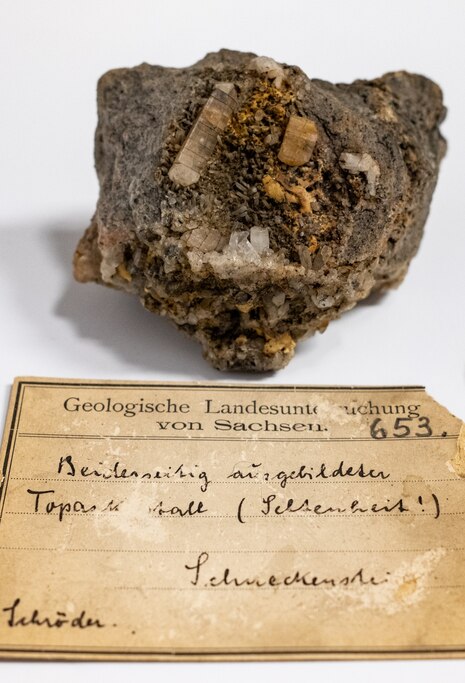 Geologische Landesuntersuchung
von Sachsen.
653.
Beiderseitig ausgebildeter
Topaskrystall (Seltenheit!)
Schneckenstei
Schröder.